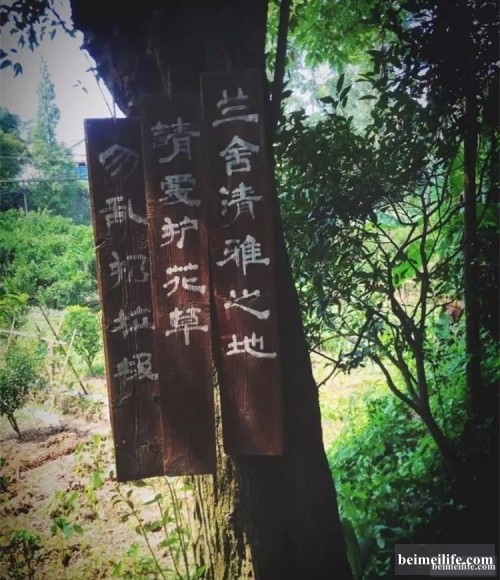 兰舍清雅之地
請爱护花草
勿乱扔垃圾
beimeilife.com
beimeilife.com